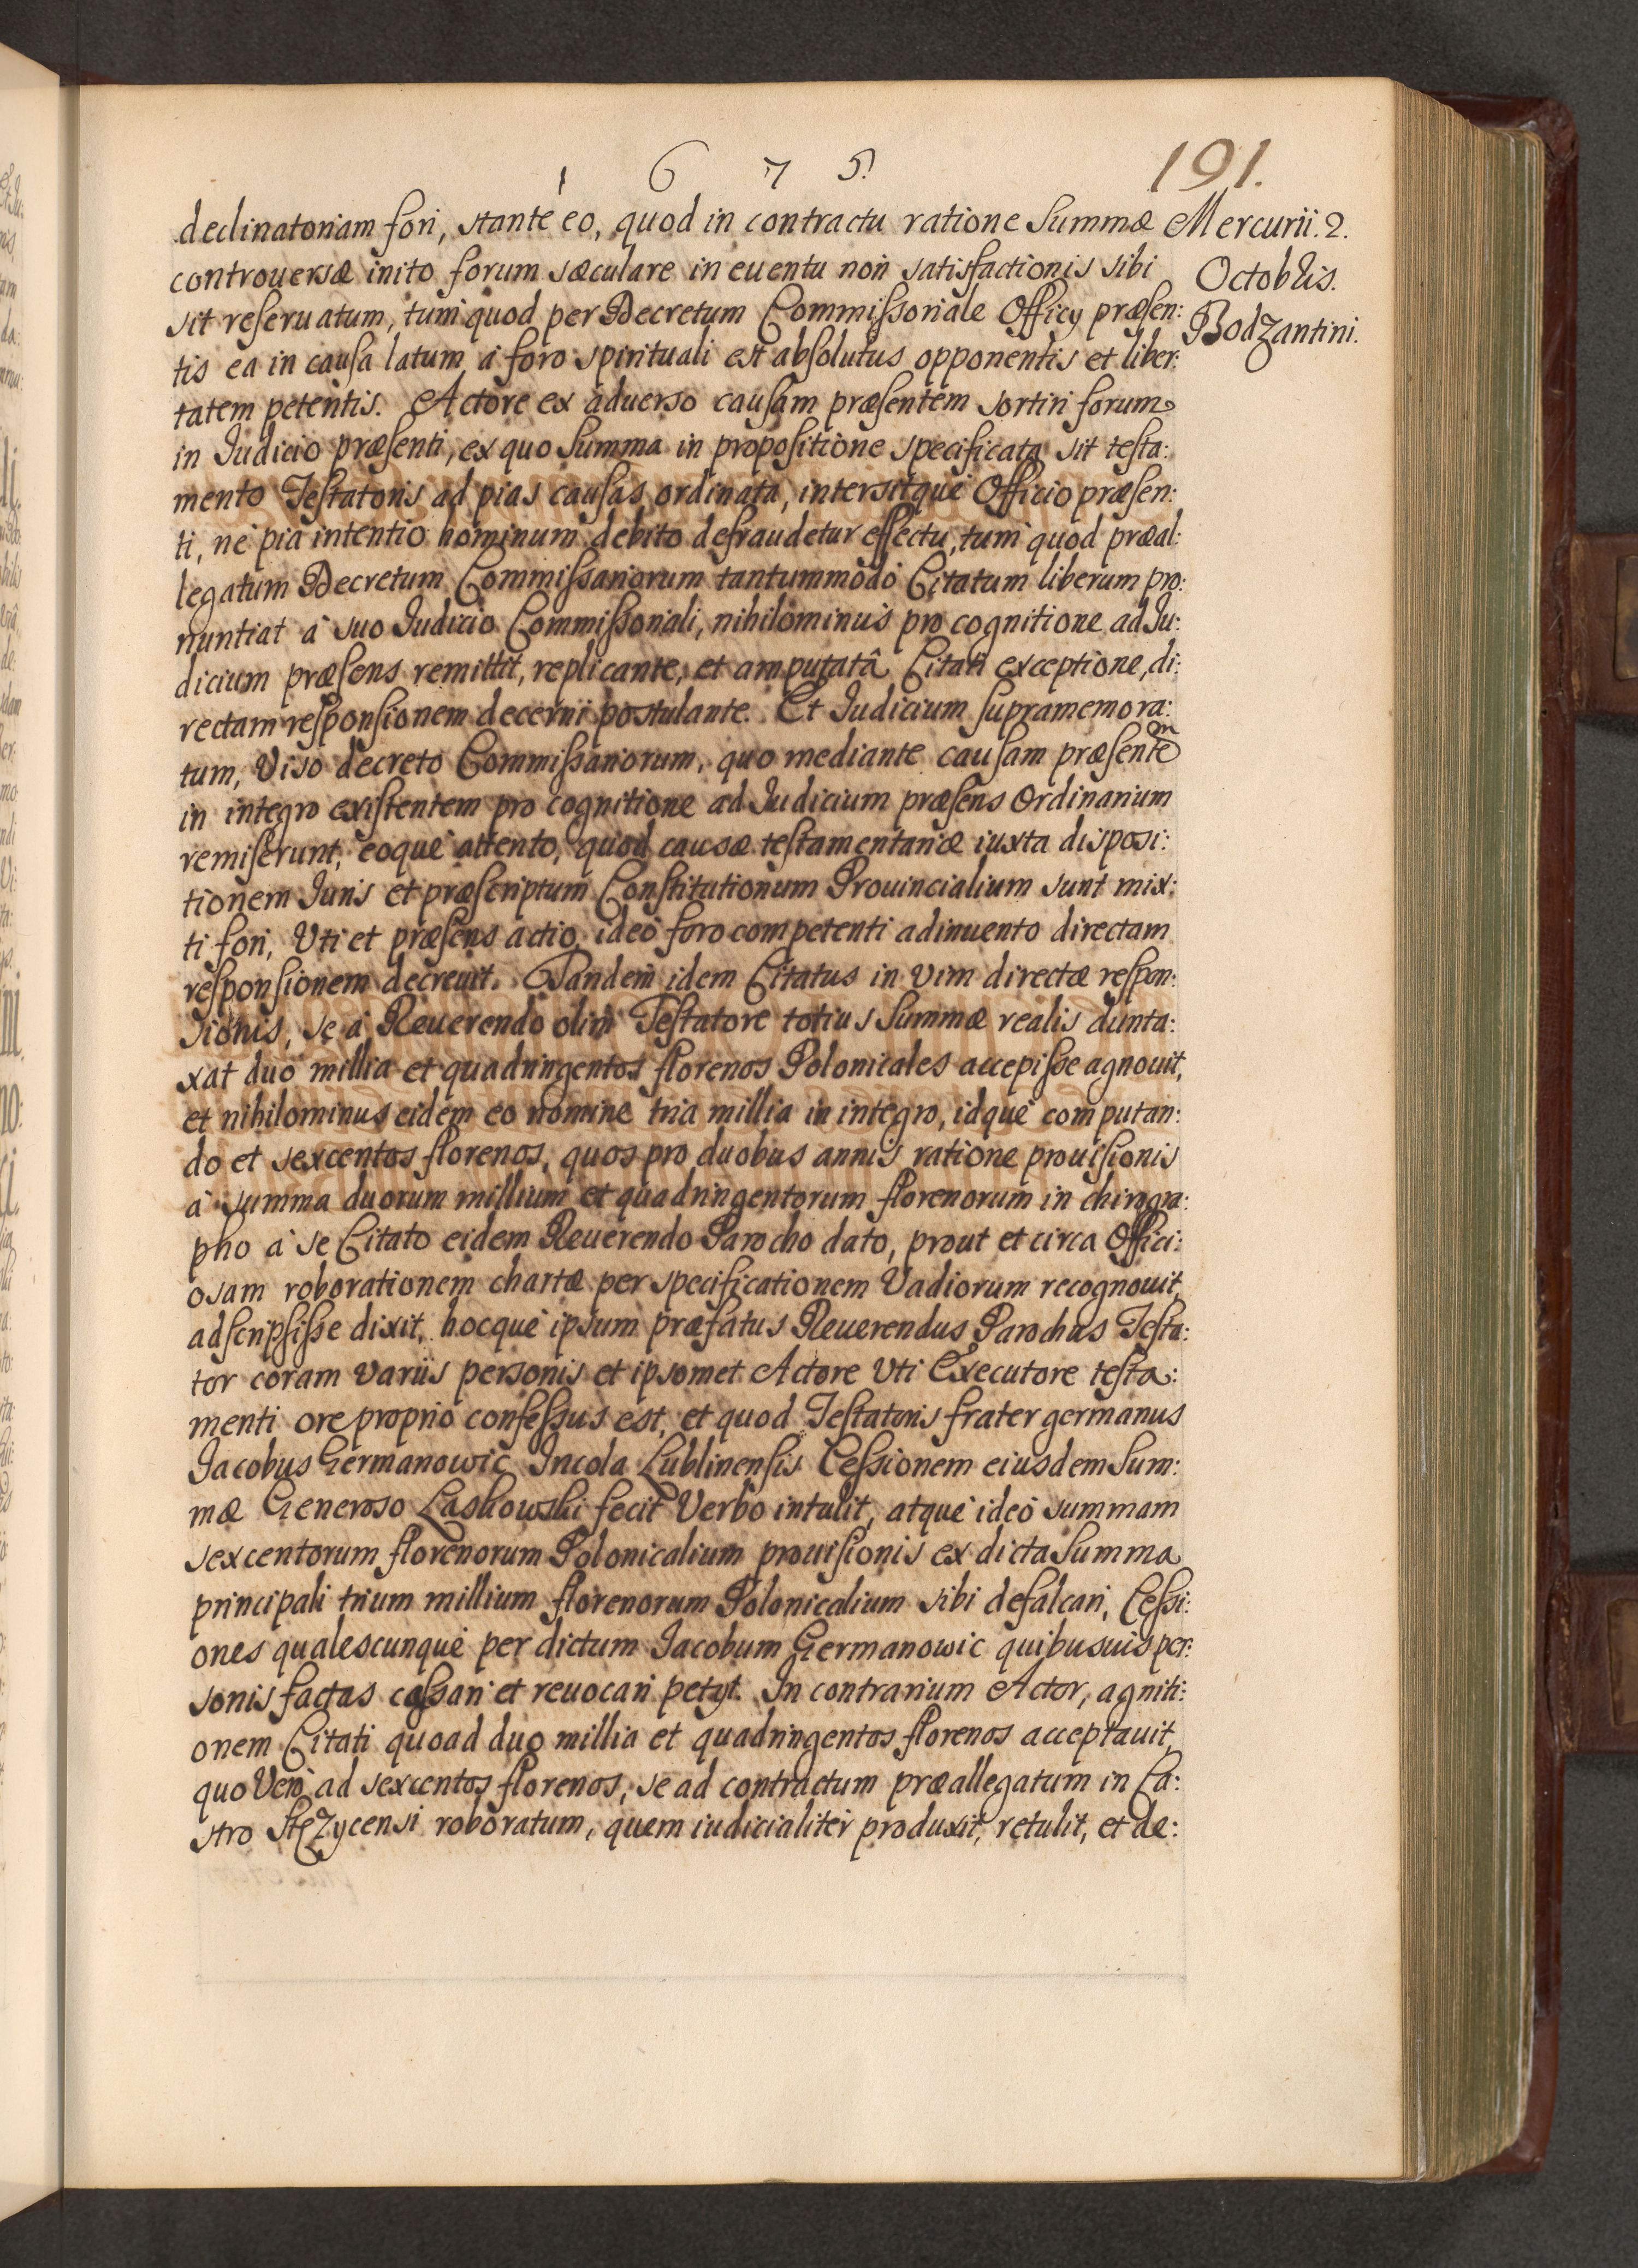 1 6 7 5.
191.
declinatoriam fori, stante eo, quod in contractu ratione Summæ
controuersæ inito forum sæculare in euentu non satisfactionis sibi
sit reseruatum, tum quod per Decretum Commissoriale Officy præsen:
tis ea in causa latum à foro spirituali est absolutus opponentis et liber:
tatem petentis. Actore ex aduerso causam præsentem sortiri forum
in Judicio præsenti, ex quo Summa in propositione specificata sit testa:
mento Testatoris ad pias causas ordinata, intersitque Officio præsen:
ti, ne pia intentio hominum debito defraudetur effectu, tum quod præal:
legatum Decretum Commissariorum tantummodò Citatum liberum pro:
nuntiat à suo Judicio Commissoriali, nihilominus pro cognitione ad Ju:
dicium præsens remittit, replicante, et amputatâ Citati exceptione, di:
rectam responsionem decerni postulante. Et Judicium supramemora:
tum, Viso decreto Commissariorum, quo mediante causam præsentem
in integro existentem pro cognitione ad Judicium præsens Ordinarium
remiserunt, eoque attento, quod causæ testamentariæ iuxta disposi:
tionem Juris et præscriptum Constitutionum Prouincialium sunt mix:
ti fori, Uti et præsens actio, ideò foro competenti adinuento directam
responsionem decreuit. Tandem idem Citatus in vim directæ respon:
sionis, se à Reuerendo olim Testatore totius Summæ realis dunta:
xat duo millia et quadringentos florenos Polonicales accepisse agnouit,
et nihilominus eidem eo nomine tria millia in integro, idque computan:
do et sexcentos florenos, quos pro duobus annis ratione prouisionis
à summa duorum millium et quadringentorum florenorum in chirogra:
pho à se Citato eidem Reuerendo Parocho dato, prout et circa Offici:
osam roborationem chartæ per specificationem Vadiorum recognouit,
adscripsisse dixit, hocque ipsum præfatus Reuerendus Parochus Testa:
tor coram variis personis et ipsomet Actore Uti Executore testa:
menti ore proprio confessus est, et quod Testatoris frater germanus
Jacobus Germanowic Incola Lublinensis Cessionem eiusdem Sum:
mæ Generoso Laskowski fecit Verbo intulit, atque ideò summam
sexcentorum florenorum Polonicalium prouisionis ex dicta Summa
principali trium millium florenorum Polonicalium sibi defalcari, Cessi:
ones qualescunque per dictum Jacobum Germanowic quibusuis per:
sonis factas cassari et reuocari petyt. In contrarium Actor, agniti:
onem Citati quoad duo millia et quadringentos florenos acceptauit,
quo Verò ad sexcentos florenos, se ad contractum præallegatum in Ca:
stro Stęzycensi roboratum, quem iudicialiter produxit, retulit, et de:
Mercurii. 2.
Octobris.
Bodzantini.